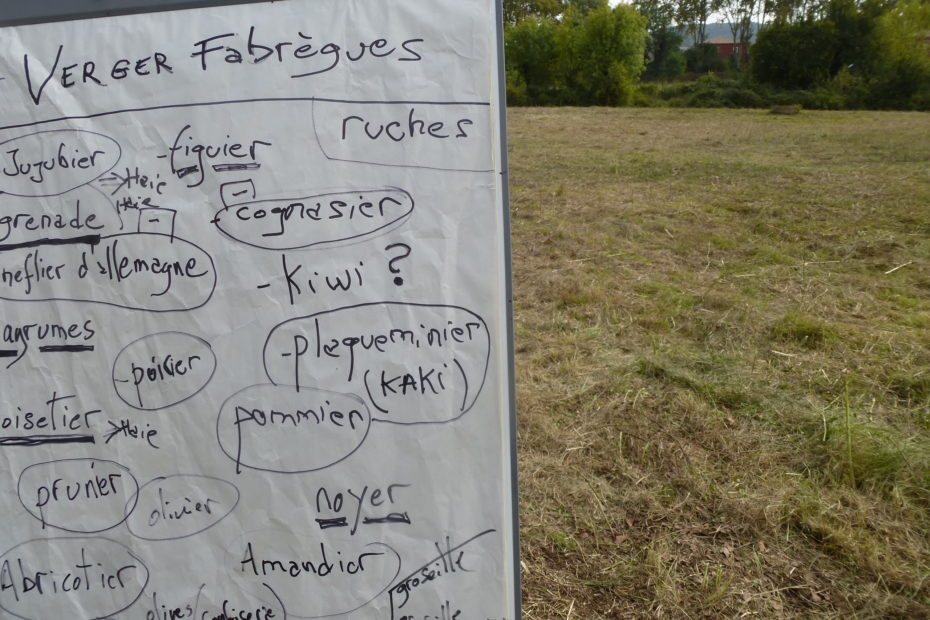 - VERGER Fabrègues
ruches
Jujubier
- figuier
=> Haie
Haie
grenade
-
-
- cognasier
neflier d'allemagne
- Kiwi ?
agrumes
- plaqueminier
(KAKi)
- poirier
pommier
oisetier => Haie
prunier
olivier
noyer
Abricotier
Amandier
groseille
olives/confiserie